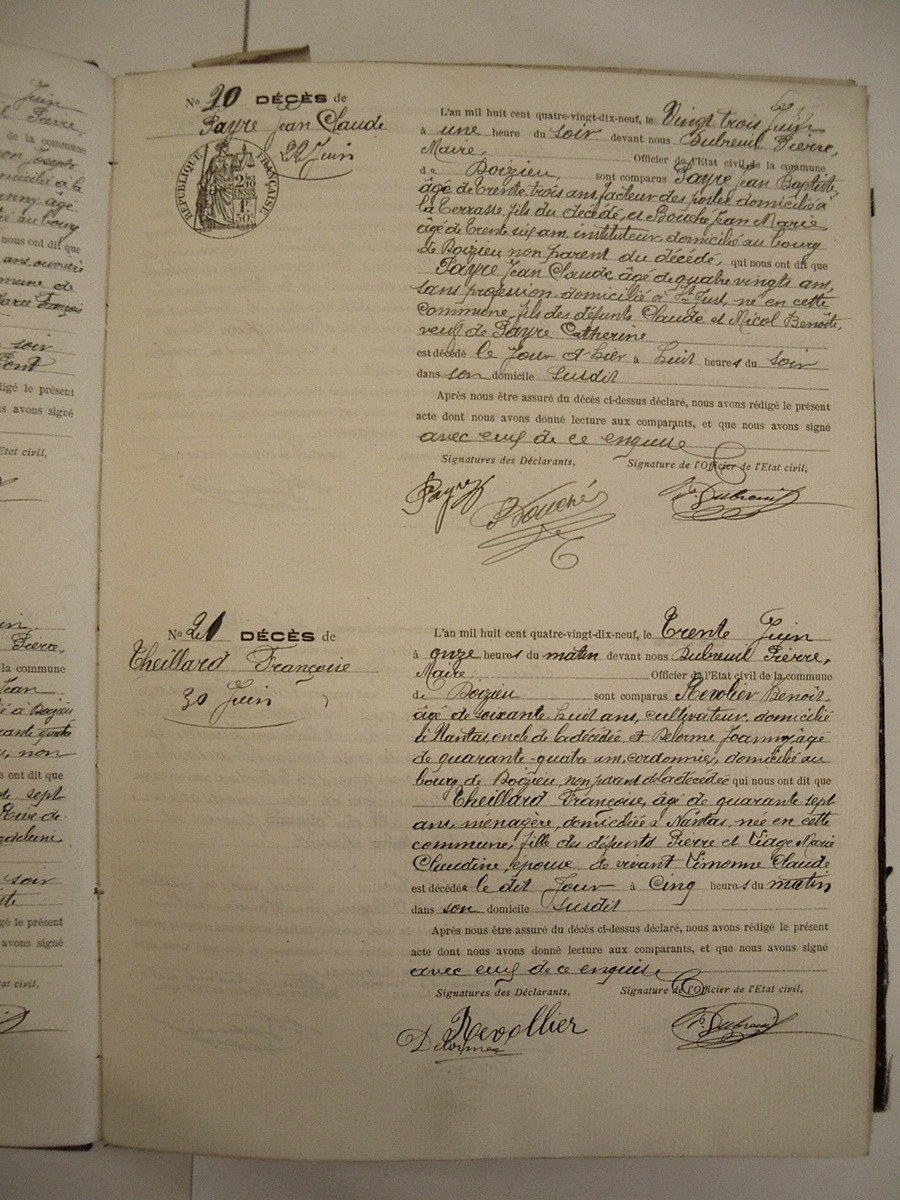 Juin
Pierre,
de la commune
domicilié à la
âgé
au bourg
nous ont dit que
ans, ouvrière
commune de
Marie François
soir
rédigé le présent
avons signé
Etat civil,
No 20 DÉCÈS de
Payre Jean Claude
22 Juin
RÉPUBLIQUE FRANÇAISE
L'an mil huit cent quatre-vingt-dix-neuf, le Vingt trois Juin
à une heure du soir devant nous Dubreuil Pierre,
Maire, Officier de l'Etat civil de la commune
de Doizieu, sont comparus Payre Jean Baptiste,
âgé de Trente trois ans, facteur des postes domicilié à
la Terrasse, fils du décédé, et Bouché Jean Marie
âgé de Trente six ans, instituteur, domicilié au bourg
de Doizieu non parent du décédé, qui nous ont dit que
Payre Jean Claude, âgé de quatre vingts ans,
sans profession domicilié à St Just, né en cette
commune, fils des défunts Claude et Micol Benoîte,
veuf de Payre Catherine
est décédé le Jour d'hier à huit heures du soir
dans son domicile susdit
Après nous être assuré du décès ci-dessus déclaré, nous avons rédigé le présent
acte dont nous avons donné lecture aux comparants, et que nous avons signé
avec eux de ce enquise
Signatures des Déclarants, Signature de l'Officier de l'Etat civil,
Payre Bouché P. Dubreuil
Pierre,
la commune
Jean
à Doizieu
quarante quatre
non
ont dit que
de sept
Rive de
soir
rédigé le présent
avons signé
Etat civil,
No 21 DÉCÈS de
Theillard Françoise
30 Juin
L'an mil huit cent quatre-vingt-dix-neuf, le Trente Juin
à onze heures du matin devant nous Dubreuil Pierre,
Maire Officier de l'Etat civil de la commune
de Doizieu sont comparus Revolier Benoit,
âgé de soixante huit ans, cultivateur, domicilié
à Nantas, oncle de la décédée, et Delorme Joanny, âgé
de quarante quatre ans, cordonnier, domicilié au
bourg de Doizieu, non parent de la décédée qui nous ont dit que
Theillard Françoise, âgé de quarante sept
ans, ménagère, domiciliée à Nantas, née en cette
commune, fille des défunts Pierre et Viage Marie
Claudine, épouse de vivant Limonne Claude
est décédée le dit Jour à Cinq heures du matin
dans son domicile susdit
Après nous être assuré du décès ci-dessus déclaré, nous avons rédigé le présent
acte dont nous avons donné lecture aux comparants, et que nous avons signé
avec eux de ce enquise
Signatures des Déclarants, Signature de l'Officier de l'Etat civil,
Revollier P. Dubreuil
Delorme